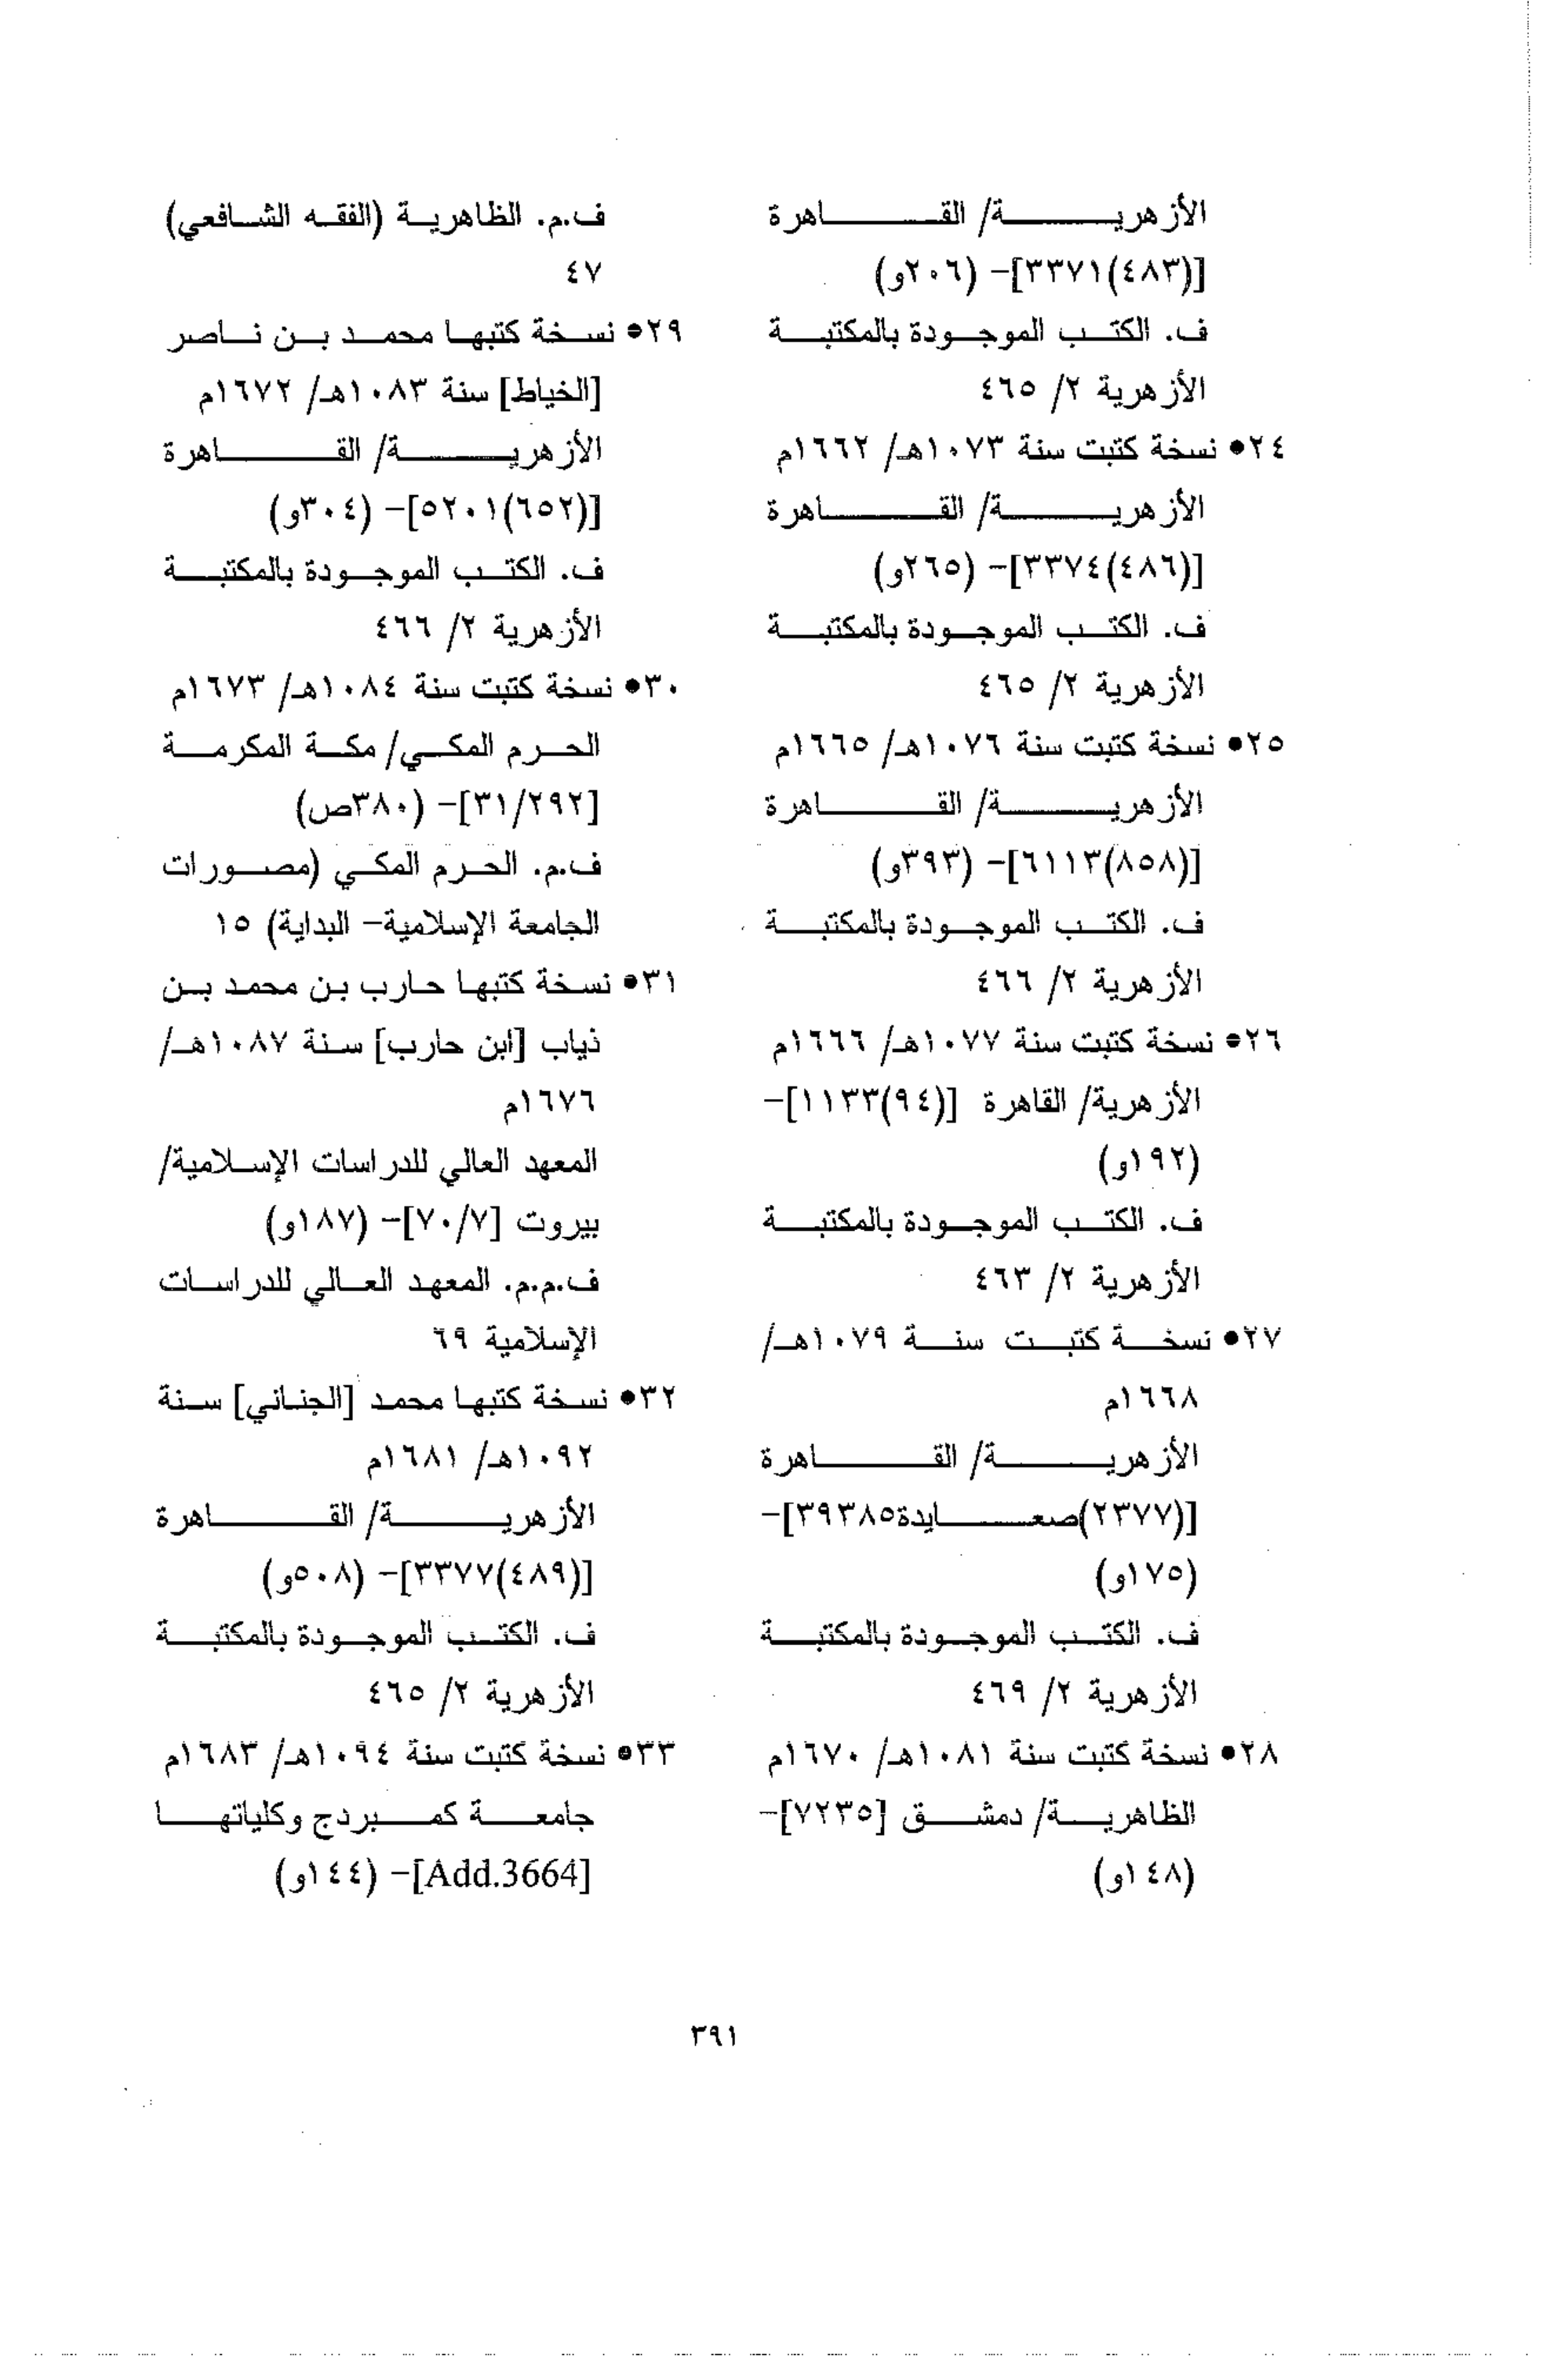 الأزهرية/ القاهرة
[(٤٨٣)٣٣٧١]- (٢٠٦و)
ف. الكتب الموجودة بالمكتبة
الأزهرية ٢/ ٤٦٥
٢٤• نسخة كتبت سنة ١٠٧٣هـ/ ١٦٦٢م
الأزهرية/ القاهرة
[(٤٨٦)٣٣٧٤]- (٢٦٥و)
ف. الكتب الموجودة بالمكتبة
الأزهرية ٢/ ٤٦٥
٢٥• نسخة كتبت سنة ١٠٧٦هـ/ ١٦٦٥م
الأزهرية/ القاهرة
[(٨٥٨)٦١١٣]- (٣٩٣و)
ف. الكتب الموجودة بالمكتبة
الأزهرية ٢/ ٤٦٦
٢٦• نسخة كتبت سنة ١٠٧٧هـ/ ١٦٦٦م
الأزهرية/ القاهرة [(٩٤)١١٣٣]-
(١٩٢و)
ف. الكتب الموجودة بالمكتبة
الأزهرية ٢/ ٤٦٣
٢٧• نسخة كتبت سنة ١٠٧٩هـ/
١٦٦٨م
الأزهرية/ القاهرة
[(٢٣٧٧)صعايدة٣٩٣٨٥]-
(١٧٥و)
ف. الكتب الموجودة بالمكتبة
الأزهرية ٢/ ٤٦٩
٢٨• نسخة كتبت سنة ١٠٨١هـ/ ١٦٧٠م
الظاهرية/ دمشق [٧٢٣٥]-
(١٤٨و)
ف.م. الظاهرية (الفقه الشافعي)
٤٧
٢٩• نسخة كتبها محمد بن ناصر
[الخياط] سنة ١٠٨٣هـ/ ١٦٧٢م
الأزهرية/ القاهرة
[(٦٥٢)٥٢٠١]- (٣٠٤و)
ف. الكتب الموجودة بالمكتبة
الأزهرية ٢/ ٤٦٦
٣٠• نسخة كتبت سنة ١٠٨٤هـ/ ١٦٧٣م
الحرم المكي/ مكة المكرمة
[٣١/٢٩٢]- (٣٨٠ص)
ف.م. الحرم المكي (مصورات
الجامعة الإسلامية- البداية) ١٥
٣١• نسخة كتبها حارب بن محمد بن
ذياب [ابن حارب] سنة ١٠٨٧هـ/
١٦٧٦م
المعهد العالي للدراسات الإسلامية/
بيروت [٧٠/٧]- (١٨٧و)
ف.م.م. المعهد العالي للدراسات
الإسلامية ٦٩
٣٢• نسخة كتبها محمد [الجناني] سنة
١٠٩٢هـ/ ١٦٨١م
الأزهرية/ القاهرة
[(٤٨٩)٣٣٧٧]- (٥٠٨و)
ف. الكتب الموجودة بالمكتبة
الأزهرية ٢/ ٤٦٥
٣٣• نسخة كتبت سنة ١٠٩٤هـ/ ١٦٨٣م
جامعة كمبردج وكلياتها
[Add.3664]- (١٤٤و)
٣٩١